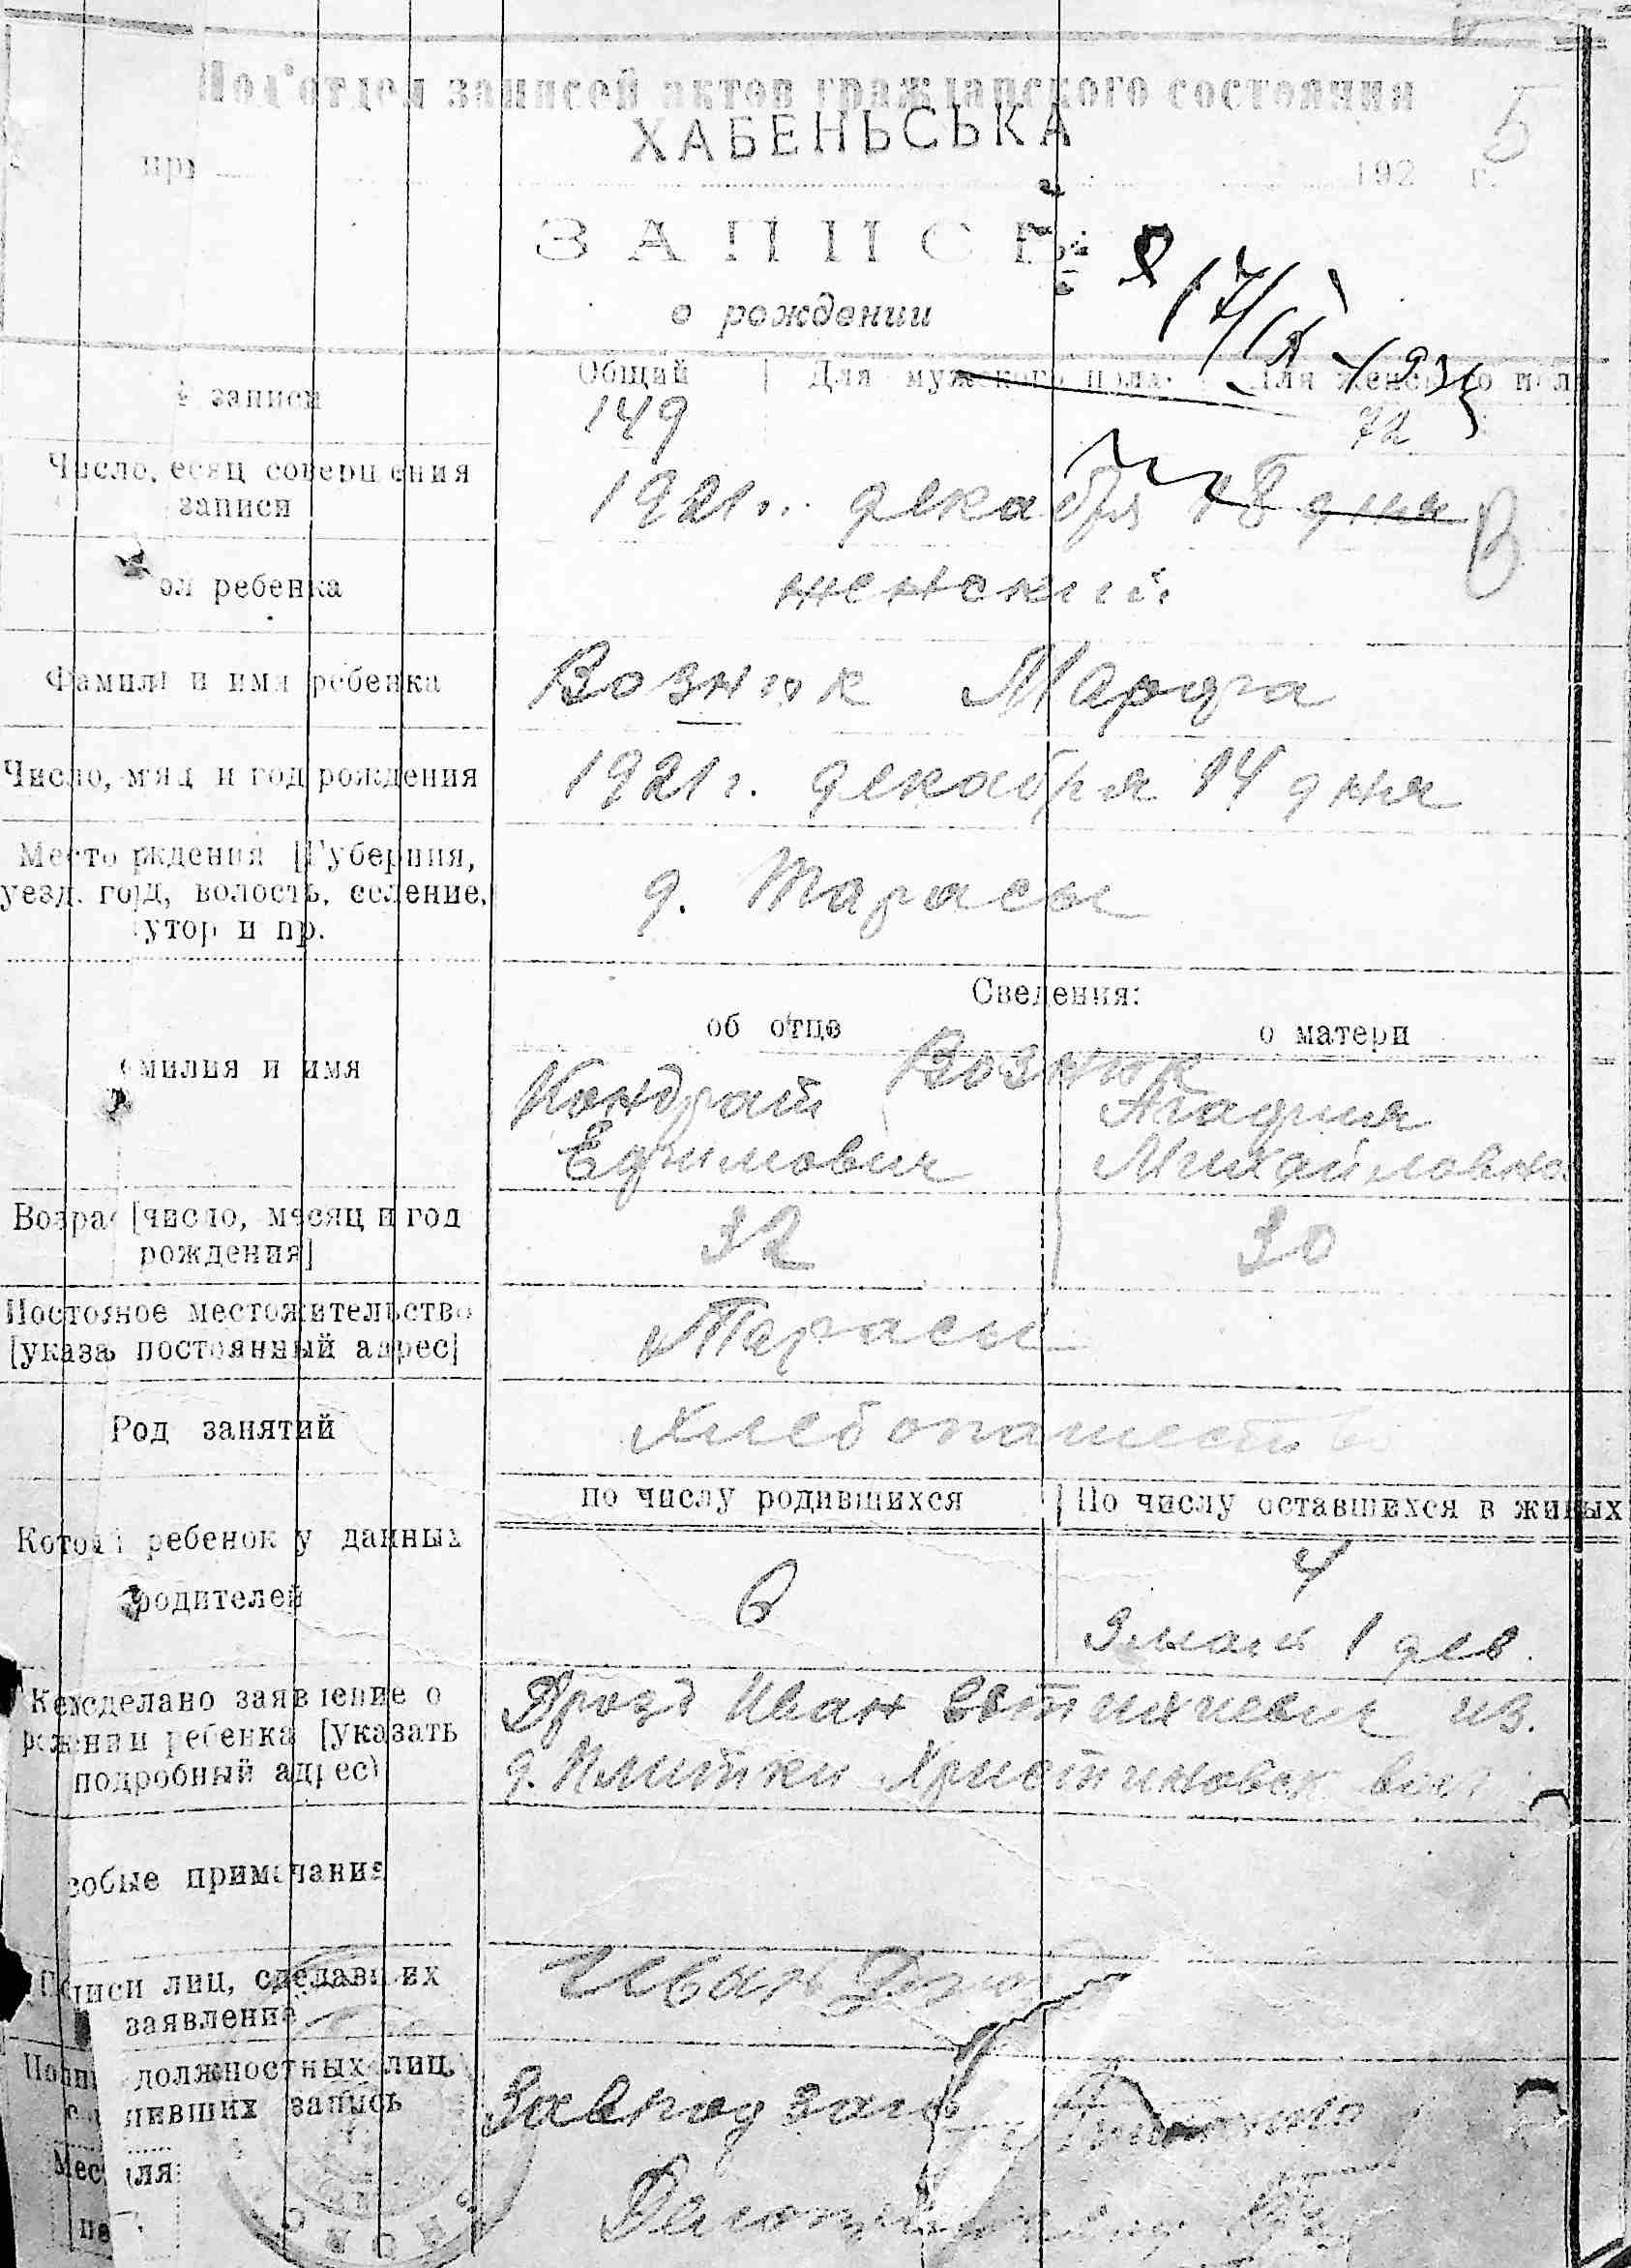 Под'отдел записей актов гражданского состояния
ХАБЕНЬСЬКА
5
при 192 г.
ЗАПИСЬ
о рождении
записи
Общий | Для мужского пола. Для женского пола
149 72
Число, есяц соверш ения
записи
1921 г. декабря 18 дня
ол ребенка
женский
Фамили и имя ребенка
Вознюк Марфа
Число, м яц и год рождения
1921 г. декабря 14 дня
Место рждения [Губерния,
уезд. гоřд, волость, селение,
утор и пр.
д. Тарасы
Сведения:
об отце о матери
милия и имя
Вознюк
Кондрат Агафия
Ефимович Михайловна
Возра [число, месяц и год
рождения]
32 30
Постояное местожительство
[указа постоянный адрес]
Тарасы
Род занятий
Хлебопашество
по числу родившихся | По числу оставшихся в живых
Кото ребенок у данных
родителей
6 4
3 мальч 1 дев.
Кем сделано заявление о
рождении ребенка [указать
подробный адрес)
Дрозд Иван Евтихиевич из
д. Плитки Христиновск. вол
собые примечания
писи лиц, сделавших
заявление
Иван Дро
должностных лиц,
нивших запись
Завподзаг
Мес ля
пе